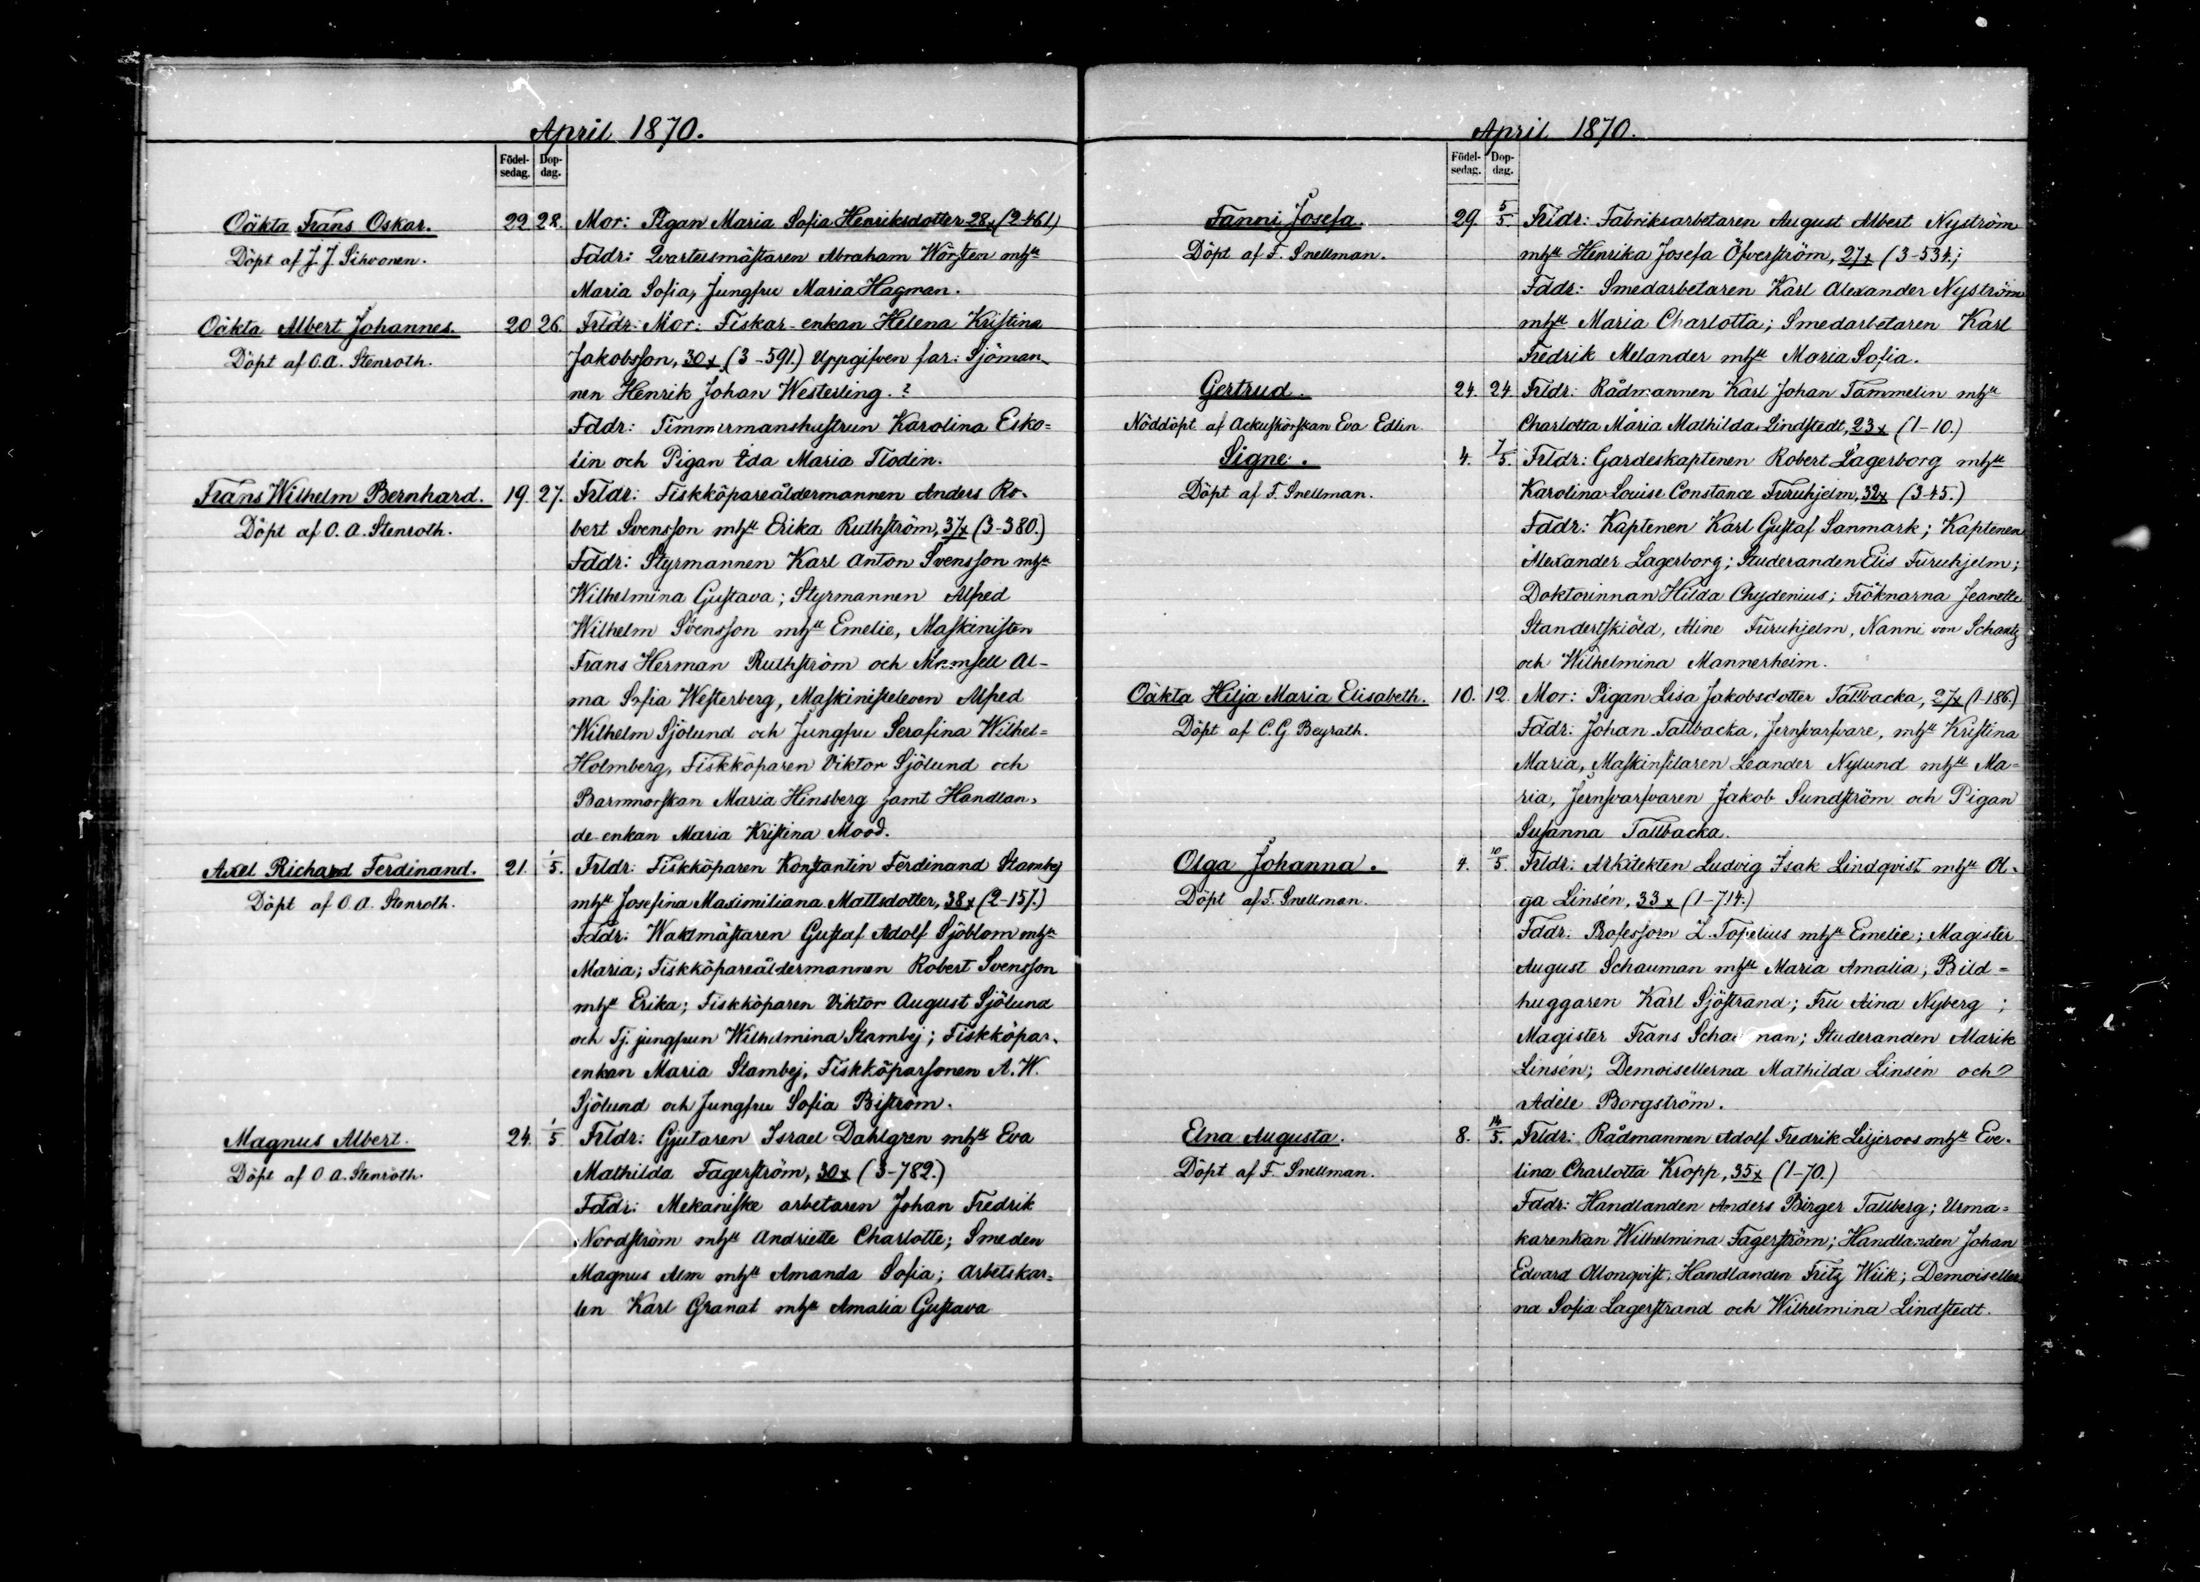 April 1870.
Födel-
sedag.
Dop-
dag.
Oäkta Frans Oskar. 22. 28. Mor: Pigan Maria Sofia Henriksdotter 28 x (2-461)
Döpt af J. J. Sihvonen. Fddr: Qvartersmästaren Abraham Wörsten mhu
Maria Sofia, Jungfru Maria Hagman.
Oäkta Albert Johannes. 20 26 Frldr: Mor: Fiskar-enkan Helena Kristina
Döpt af O. A. Stenroth. Jakobsson, 30 x (3-591.) Uppgifven far: Sjöman-
nen Henrik Johan Westerling.?
Fddr: Timmermanshustrun Karolina Esko=
lin och Pigan Ida Maria Flodin.
Frans Wilhelm Bernhard. 19. 27. Frldr: Fiskköpareåldermannen Anders Ro-
Döpt af O. A. Stenroth. bert Svensson mhu Erika Ruthström, 37x (3-380.)
Fddr: Styrmannen Karl Anton Svensson mhu
Wilhelmina Gustava; Styrmannen Alfred
Wilhelm Svensson mhu Emelie, Maskinisten
Frans Herman Ruthström och Mamsell Al-
ma Sofia Westerberg, Maskinisteleven Alfred
Wilhelm Sjölund och Jungfru Serafina Wilhel=
Holmberg, Fiskköparen Viktor Sjölund och
Barnmorskan Maria Hinsberg samt Handlan-
de enkan Maria Kristina Mood.
Axel Richard Ferdinand. 21. 1/5. Frldr: Fiskköparen Konstantin Ferdinand Stambej
Döpt af O. A. Stenroth. mhu Josefina Maximiliana Mattsdotter, 38 x (2-157.)
Fddr: Waktmästaren Gustaf Adolf Sjöblom mhu
Maria; Fiskköpareåldermannen Robert Svensson
mhu Erika; Fiskköparen Viktor August Sjölund
och Tj. jungfrun Wilhelmina Stambej; Fiskköpar-
enkan Maria Stambej, Fiskköparsonen A. W.
Sjölund och Jungfru Sofia Biström.
Magnus Albert. 24. 1/5 Frldr: Gjutaren Israel Dahlgren mhu Eva
Döpt af O. A. Stenroth. Mathilda Fagerström, 30 x (3-782.)
Fddr: Mekaniske arbetaren Johan Fredrik
Nordström mhu Andriette Charlotte; Smeden
Magnus Alm mhu Amanda Sofia; Arbetskar=
len Karl Granat mhu Amalia Gustava
April 1870.
Födel-
sedag.
Dop-
dag.
Fanni Josefa. 29. 5/5. Frldr: Fabriksarbetaren August Albert Nyström
Döpt af F. Snellman. mhu Henrika Josefa Öfverström, 27x (3-534.;
Fddr: Smedarbetaren Karl Alexander Nyström
mhu Maria Charlotta; Smedarbetaren Karl
Fredrik Melander mhu Maria Sofia.
Gertrud. 24. 24 Frldr: Rådmannen Karl Johan Tammelin mhu
Nöddöpt af Ackuschörskan Eva Edlin Charlotta Maria Mathilda Lindstedt, 23x (1-10.)
Signe. 4. 7/5. Frldr: Gardeskaptenen Robert Lagerborg mhu
Döpt af F. Snellman. Karolina Louise Constance Furuhjelm, 32x (3-45.)
Fddr: Kaptenen Karl Gustaf Sanmark; Kaptenen
Alexander Lagerborg; Studeranden Elis Furuhjelm;
Doktorinnan Hilda Chydenius; Fröknarna Jeanette
Standertskiöld, Aline Furuhjelm, Nanni von Schantz
och Wilhelmina Mannerheim.
Oäkta Hilja Maria Elisabeth. 10. 12. Mor: Pigan Lisa Jakobsdotter Tallbacka, 27x (1-186.)
Döpt af C. G. Beyrath. Fddr: Johan Tallbacka, Jernsvarfvare, mhu Kristina
Maria, Maskinfilaren Leander Nylund mhu Ma=
ria, Jernsvarfvaren Jakob Sundström och Pigan
Susanna Tallbacka.
Olga Johanna. 4. 10/5. Frldr: Arkitekten Ludvig Isak Lindqvist mhu Ol-
Döpt af F. Snellman. ga Linsén, 33 x (1-714.)
Fddr: Professorn Z. Topelius mhu Emelie; Magister
August Schauman mhu Maria Amalia; Bild=
huggaren Karl Sjöstrand; Fru Aina Nyberg;
Magister Frans Schauman; Studeranden Marik
Linsén; Demoisellerna Mathilda Linsén och
Adèle Borgström.
Elna Augusta. 8. 14/5. Frldr: Rådmannen Adolf Fredrik Liljeroos mhu Eve-
Döpt af F. Snellman. lina Charlotta Kropp, 35x (1-70.)
Fddr: Handlanden Anders Birger Tallberg; Urma=
karenkan Wilhelmina Fagerström; Handlanden Johan
Edvard Almqvist, Handlanden Fritz Wiik; Demoiseller
na Sofia Lagerstrand och Wilhelmina Lindstedt.